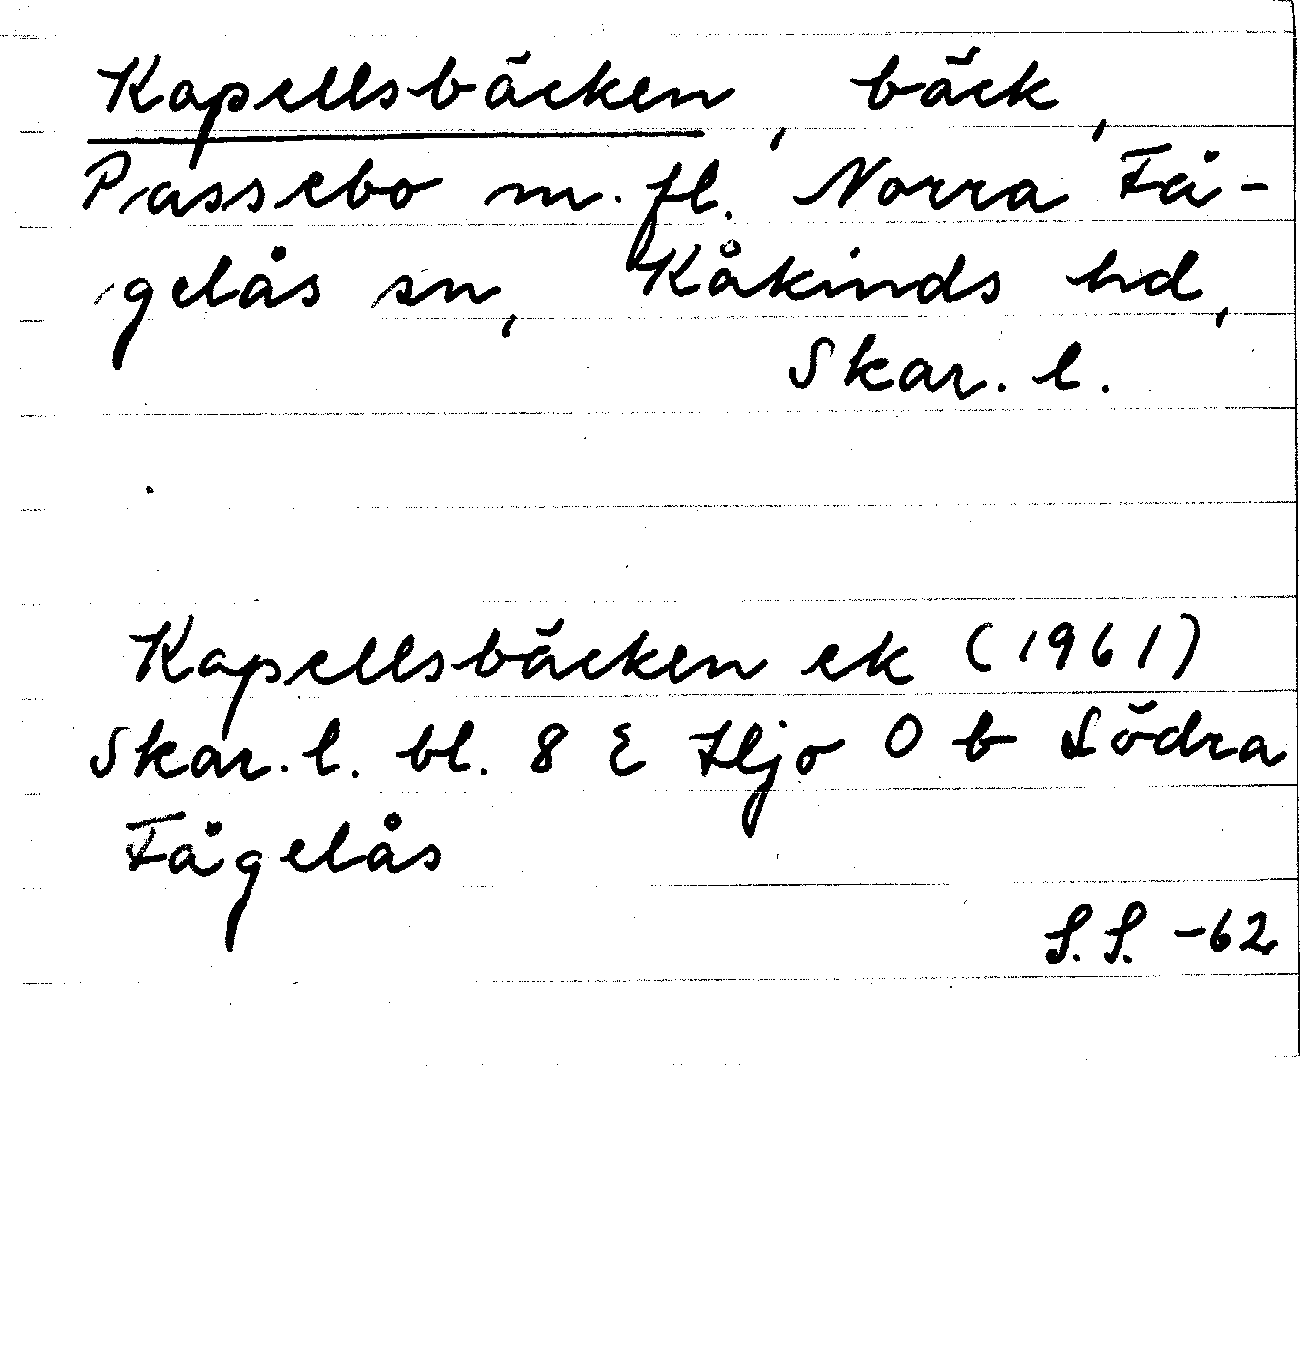 Kapellsbäcken, bäck,
Passebo m.fl. Norra Få-
gelås sn, Kåkinds hd,
Skar. l.
Kapellsbäcken ek (1961)
Skar. l. bl. 8 E Hjo 0 b Södra
Fågelås
S.S. -62